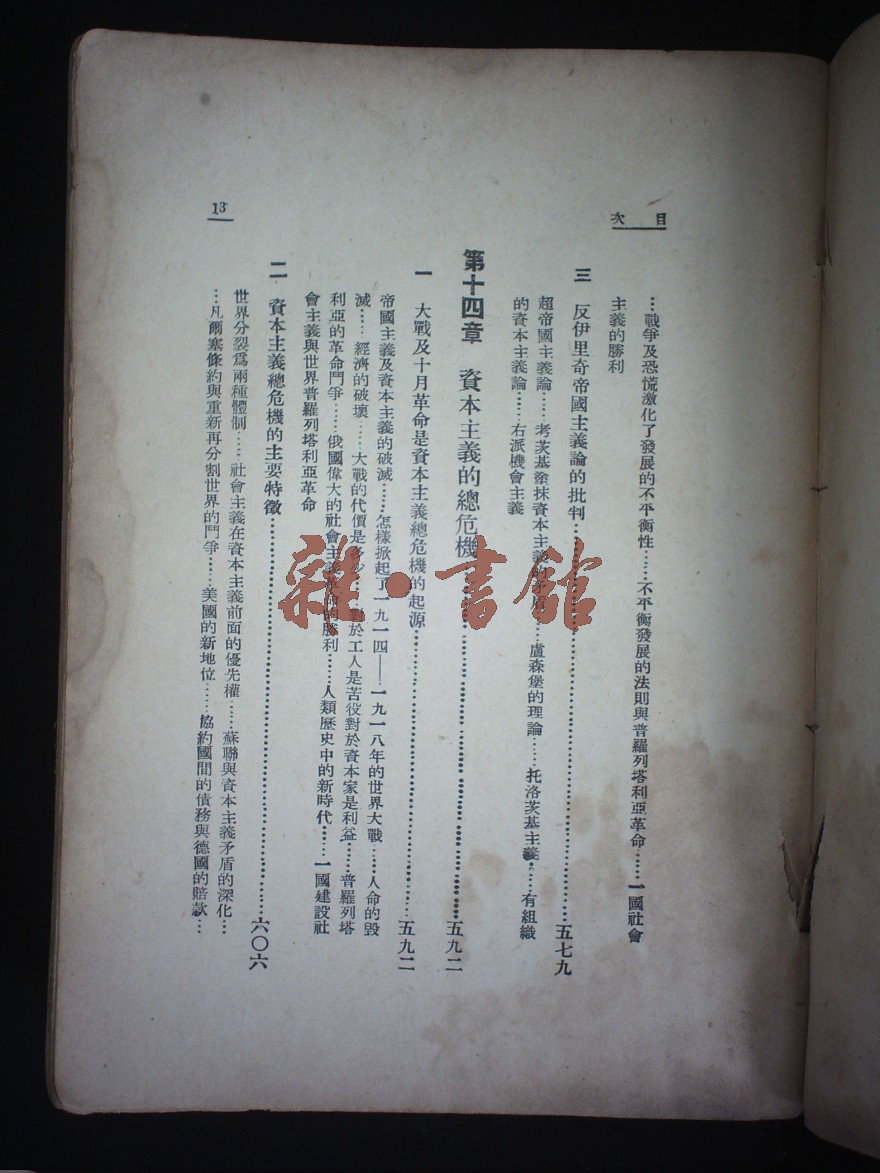 目次
…戰爭及恐慌激化了發展的不平衡性……不平衡發展的法則與普羅列塔利亞革命……一國社會
主義的勝利
三 反伊里奇帝國主義論的批判……五七九
超帝國主義論……考茨基塗抹資本主義的矛盾……盧森堡的理論……托洛茨基主義……有組織
的資本主義論……右派機會主義
第十四章 資本主義的總危機……五九二
一 大戰及十月革命是資本主義總危機的起源……五九二
帝國主義及資本主義的破滅……怎樣掀起了一九一四——一九一八年的世界大戰……人命的毀
滅……經濟的破壞……大戰的代價是多少……對於工人是苦役對於資本家是利益……普羅列塔
利亞的革命鬥爭……俄國偉大的社會主義革命的勝利……人類歷史中的新時代……一國建設社
會主義與世界普羅列塔利亞革命
二 資本主義總危機的主要特徵……六〇六
世界分裂爲兩種體制……社會主義在資本主義前面的優先權……蘇聯與資本主義矛盾的深化…
…凡爾塞條約與重新再分割世界的鬥爭……美國的新地位……協約國間的債務與德國的賠款…
13
雜·書館